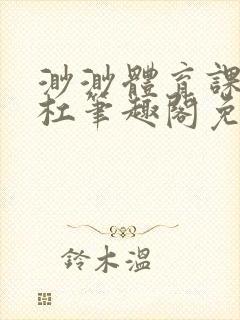 渺渺體育課
杜筆趣閣免
鈴木溫